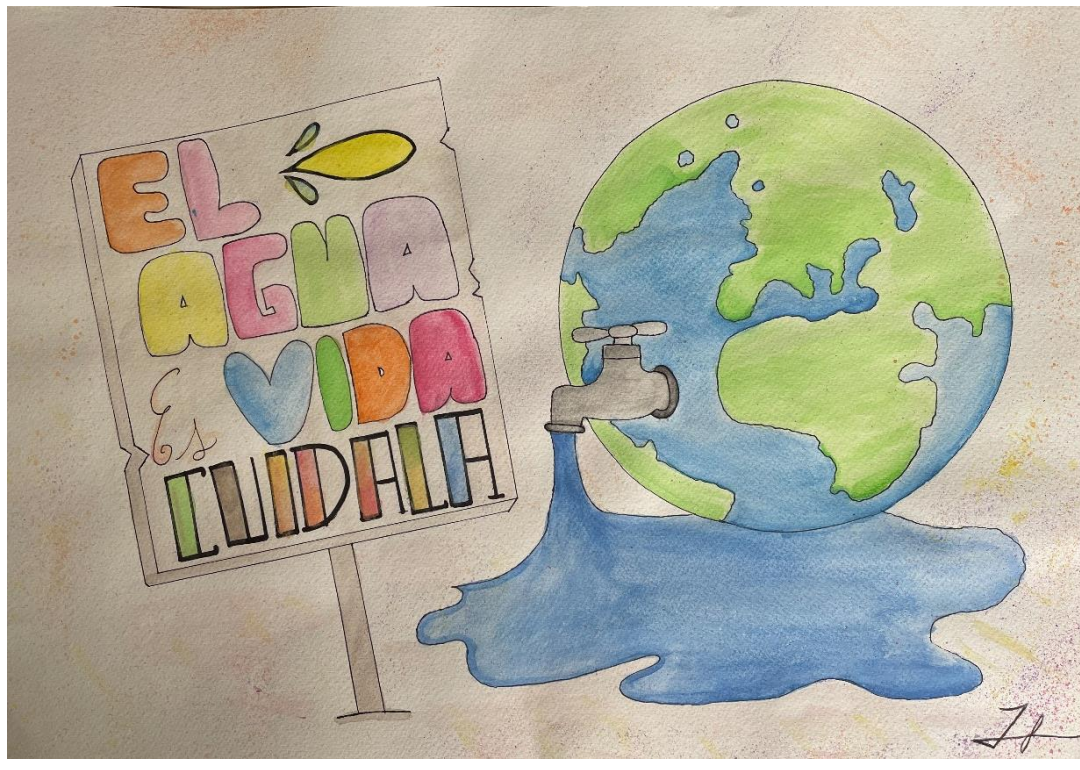 EL
AGUA
Es VIDA
CUIDALA